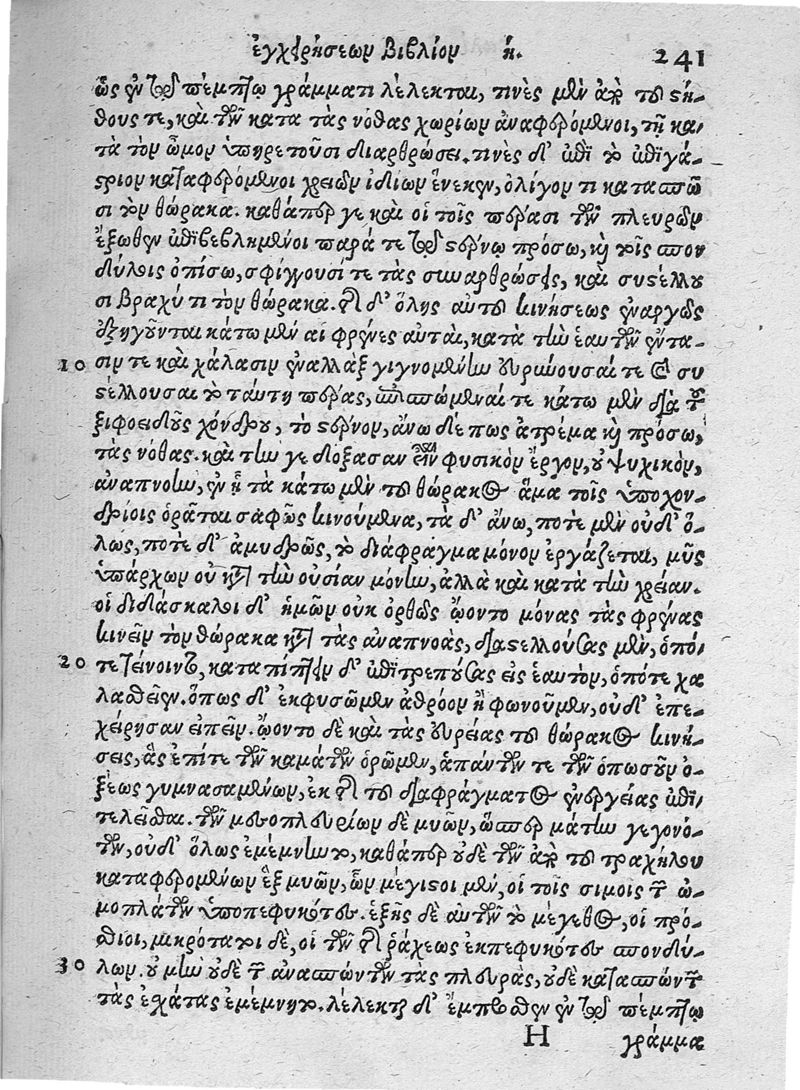 ἐγχειρήσεων βιβλίον η. 241
ὡς ἐν τῷ πέμπτῳ γράμματι λέλεκται, τινὲς μὲν ἀπὸ τοῦ στή-
θους τε, καὶ τῶν κατα τὰς νόθας χωρίων ἀναφερόμενοι, τῇ κα-
τὰ τὸν ὦμον ὑπηρετοῦσι διαρθρώσει. τινὲς δ' ἐπὶ τὸ ἐπιγά-
στριον καταφερόμενοι χρειῶν ἰδίων ἕνεκεν, ὀλίγον τι κατασπῶ
σι τὸν θώρακα. καθάπερ γε καὶ οἱ τοῖς πέρασι τῶν πλευρῶν
ἔξωθεν ἐπιβεβλημένοι παρά τε τῷ στέρνῳ πρόσω, καὶ τοῖς σπον
δύλοις ὀπίσω, σφίγγουσί τε τὰς συναρθρώσεις, καὶ συστέλλου
σι βραχύ τι τὸν θώρακα. τῆς δ' ὅλης αὐτοῦ κινήσεως ἐναργῶς
ἐξηγοῦνται κάτω μὲν αἱ φρένες αὐταὶ, κατὰ τὴν ἑαυτῶν ἔντα-
10 σιν τε καὶ χάλασιν ἐναλλὰξ γιγνομένην εὐρύνουσαί τε καὶ συ
στέλλουσαι τὸ ταύτῃ πέρας, ἐπισπώμεναί τε κάτω μὲν διὰ τοῦ
ξιφοειδοῦς χόνδρου, τὸ στέρνον, ἄνω δέ πως ἀτρέμα καὶ πρόσω,
τὰς νόθας. καὶ τήν γε δόξασαν εἶναι φυσικὸν ἔργον, οὐ ψυχικὸν,
ἀναπνοὴν, ἐν ᾗ τὰ κάτω μὲν τοῦ θώρακος ἅμα τοῖς ὑποχον-
δρίοις ὁρᾶται σαφῶς κινούμενα, τὰ δ' ἄνω, ποτὲ μὲν οὐδ' ὅ-
λως, ποτὲ δ' ἀμυδρῶς, τὸ διάφραγμα μόνον ἐργάζεται, μῦς
ὑπάρχων οὐ κατὰ τὴν οὐσίαν μόνην, ἀλλὰ καὶ κατὰ τὴν χρείαν.
οἱ διδάσκαλοι δ' ἡμῶν οὐκ ὀρθῶς ᾤοντο μόνας τὰς φρένας
κινεῖν τὸν θώρακα κατὰ τὰς ἀναπνοὰς, διαστελλούσας μὲν, ὁπό-
20 τε τείνοιντο, καταπίπτειν δ' ἐπιτρεπούσας εἰς ἑαυτὸν, ὁπότε χα
λασθεῖεν. ὅπως δ' ἐκφυσῶμεν ἀθρόον ἢ φωνοῦμεν, οὐδ' ἐπε-
χείρησαν εἰπεῖν. ᾤοντο δὲ καὶ τὰς εὐρείας τοῦ θώρακος κινή-
σεις, ἃς ἐπίτε τῶν καμάτων ὁρῶμεν, ἁπάντων τε τῶν ὁπωσοῦν ὀ-
ξέως γυμνασαμένων, ἐκ τῆς τοῦ διαφράγματος ἐνεργείας ἐπι-
τελεῖσθαι. τῶν μεσοπλευρίων δὲ μυῶν, ὥσπερ μάτην γεγονό-
των, οὐδ' ὅλως ἐμέμνηντο, καθάπερ οὐδὲ τῶν ἀπὸ τοῦ τραχήλου
καταφερομένων ἓξ μυῶν, ὧν μέγιστοι μὲν, οἱ τοῖς σιμοῖς τῶν ὠ-
μοπλάτων ὑποπεφυκότες. ἑξῆς δὲ αὐτῶν τὸ μέγεθος, οἱ πρό-
σθιοι, μικρότατοι δὲ, οἱ τῶν τῆς ῥάχεως ἐκπεφυκότες σπονδύ-
30 λων. οὐ μὴν οὐδὲ τῶν ἀνασπώντων τὰς πλευρὰς, οὐδὲ κατασπώντων
τὰς ἐσχάτας ἐμέμνηντο. λέλεκται δ' ἔμπροσθεν ἐν τῷ πέμπτῳ
H γράμμα